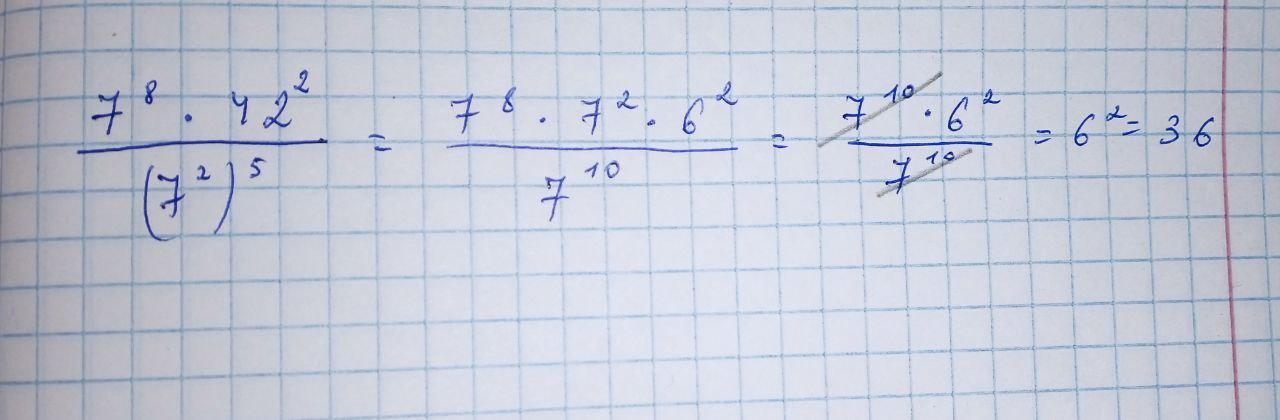 \frac{7^8 \cdot 42^2}{(7^2)^5} = \frac{7^8 \cdot 7^2 \cdot 6^2}{7^{10}} = \frac{7^{10} \cdot 6^2}{7^{10}} = 6^2 = 36